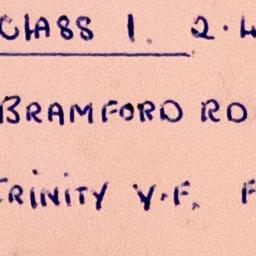 CLASS 1. 2.4
BRAMFORD RD
TRINITY V.F. F